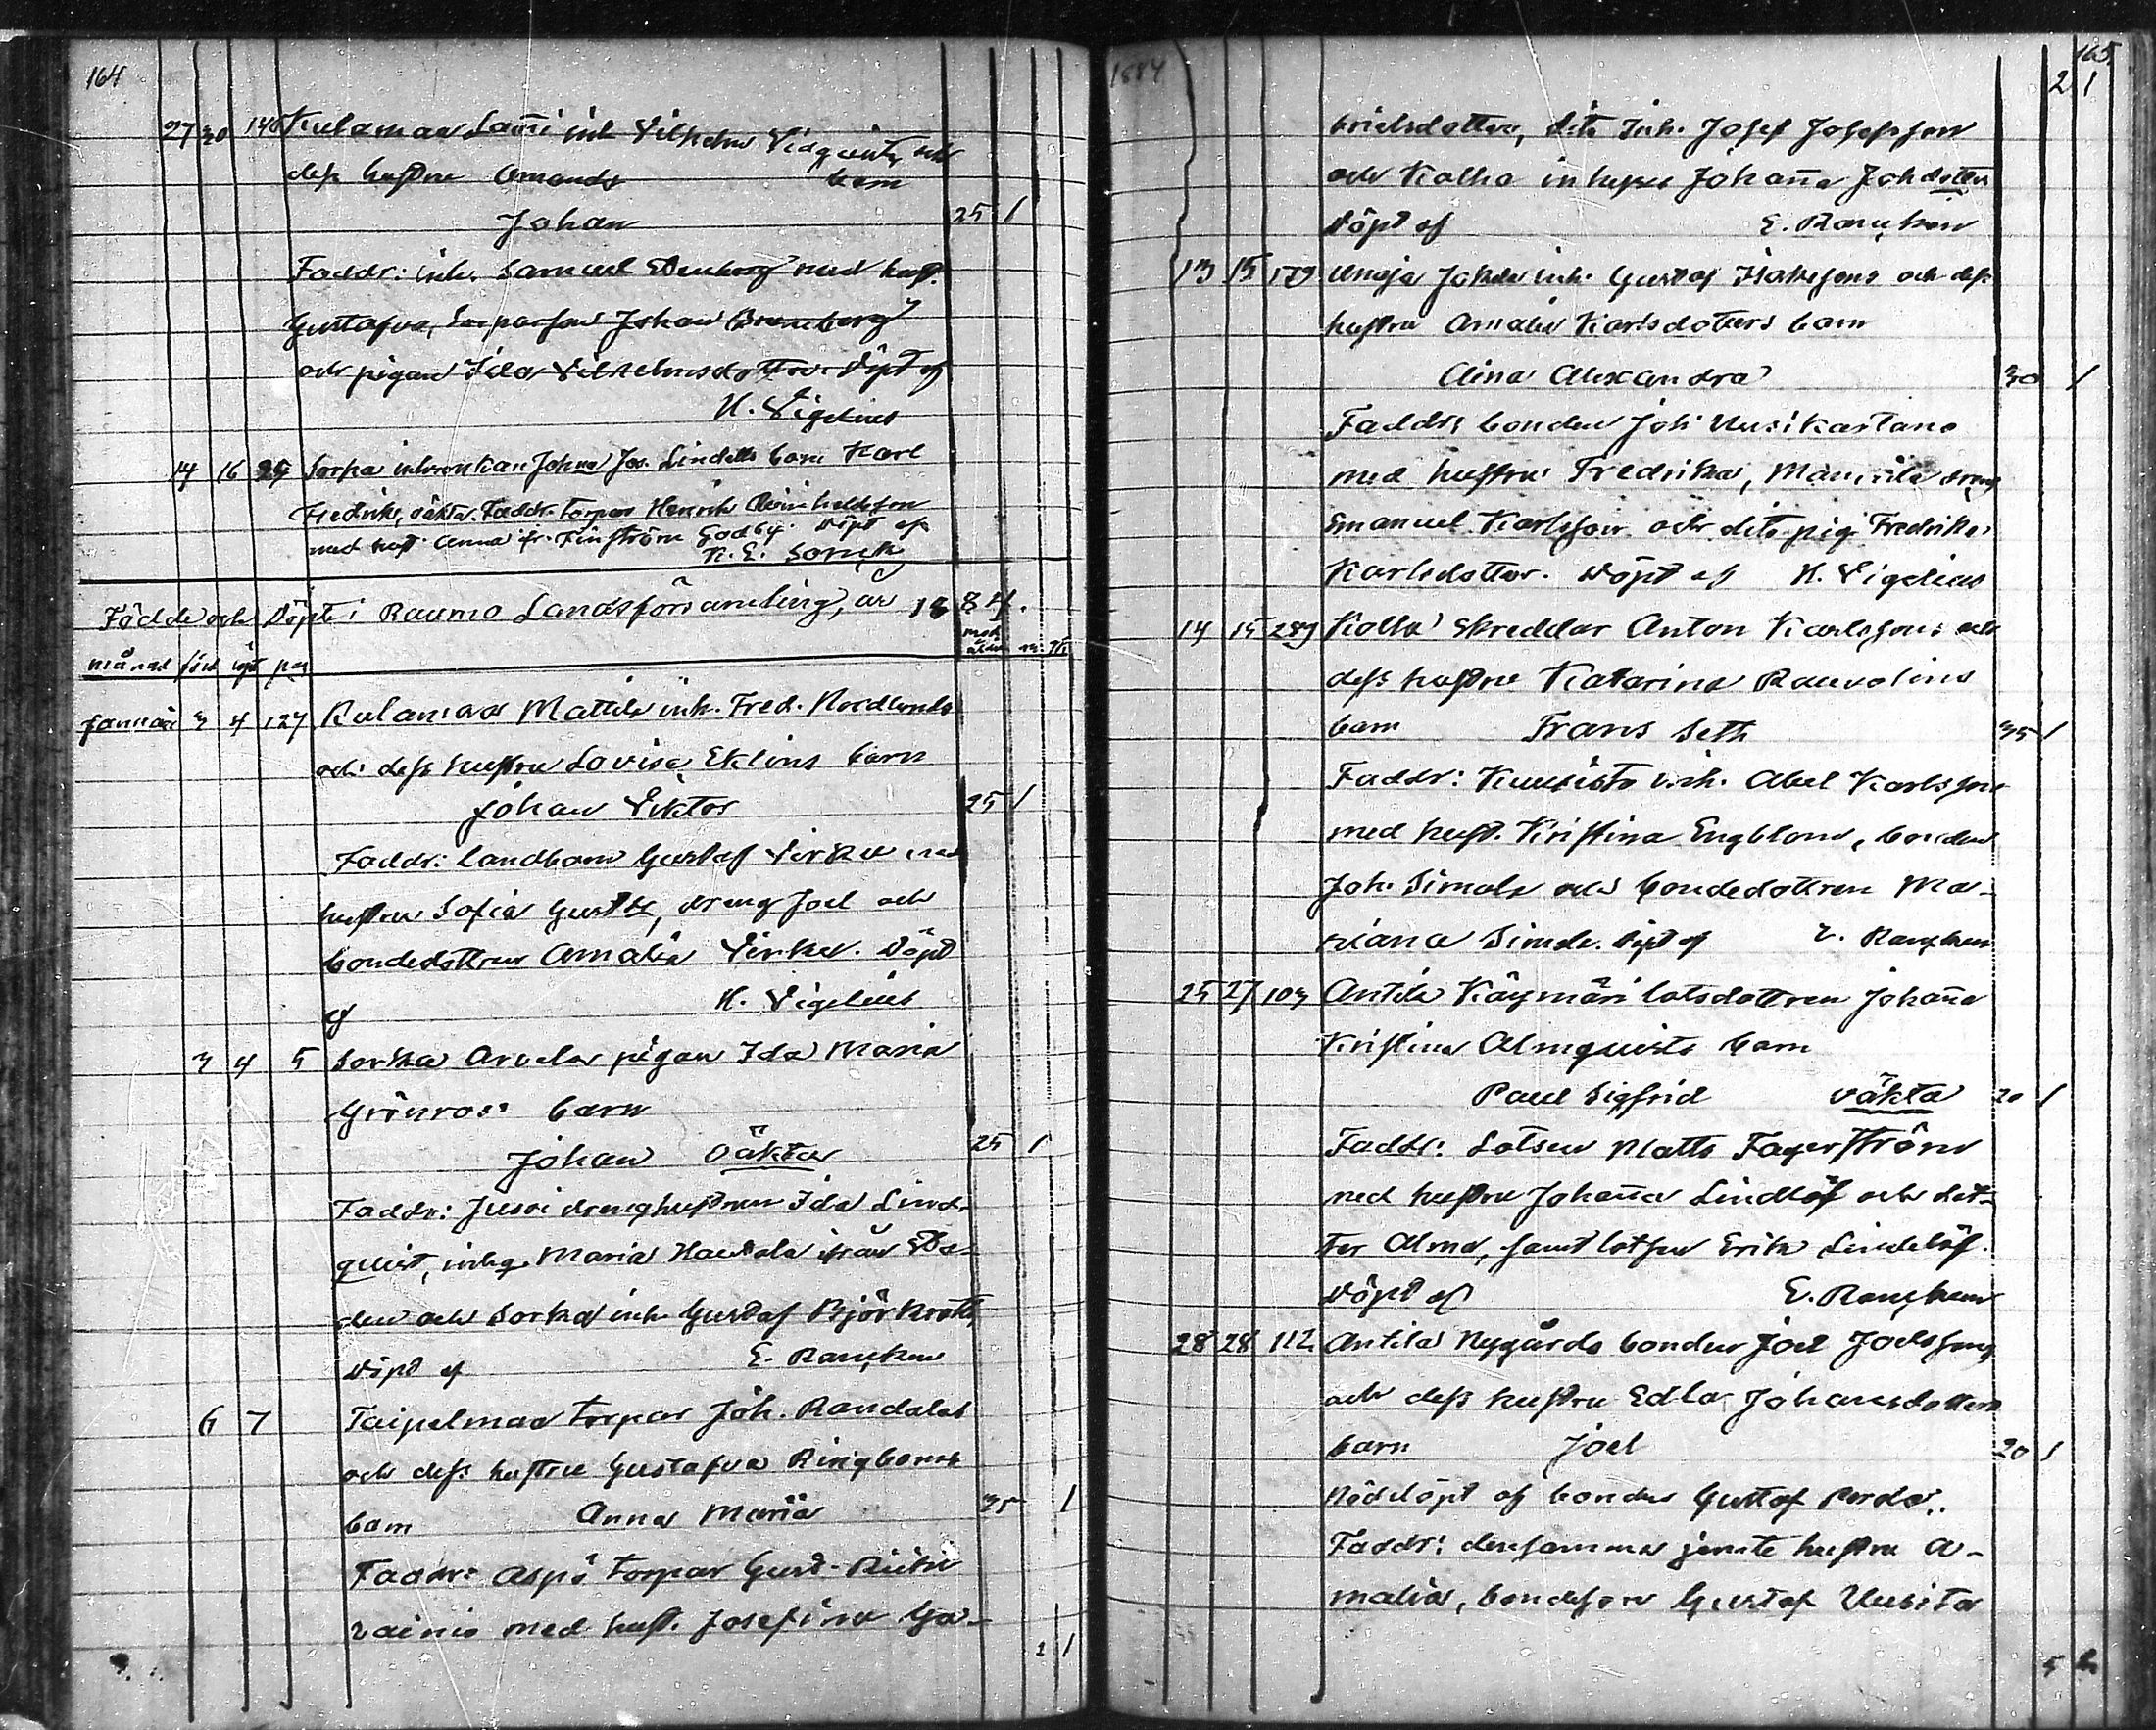 164
27 30 146 Kulamaa Lañi inh Vilhelm Vidqvists och
dess hustru Amanda barn
Johan 25 1
Faddr: inh. Samuel Stenberg med hust.
Gustafva, Johan Bromberg
och pigan Ida Vilhelmsdotter. Döpt af
K. Vigelius
14 16 29 Sorka Johna Jos. Lindells barn Karl
Fredrik, oäkta. Faddr. torpar Henrik
med hust. Anna fr. Finström Godby. Döpt af
K. E. Sonck
Födde och Döpte i Raumo Landsförsamling, år 1884.
månad föd döpt pag
Januari 3 4 127 Kulamaa Mattila inh. Fred. Nordlunds
och dess hustru Lovisa Eklins barn
Johan Viktor 25 1
Faddr: landbon Gustaf Virku med
hustru Sofia Gust, dreng Joel och
bondedottren Amalia Virku. Döpt
af K. Vigelius
3 4 5 Sorka Arvela pigan Ida Maria
Grönroos barn
Johan Oäkta 25 1
Faddr: Jussi drenghustrun Ida Lind-
qvist, inhys. Maria Hautala från
den och Sorka inh. Gustaf Björkroth,
Döpt af E. Rancken
6 7 Taipelmaa torpar Joh. Randalas
och dess hustru Gustafva Ringboms
barn Anna Maria 35 1
Faddr: Aspö torpar Gust.
vainio med hust. Josefina Ga-
2 1
1884 165
2 1
brielsdotter, dito Inh. Josef Josefsson
och Kolla inhyses Johaña Johdotter
Döpt af E. Rancken
13 15 179 Unaja Jokela inh. Gustaf Isakssons och dess
hustru Amalia Karlsdotters barn
Aina Alexandra 30 1
Faddr: bonden Joh Uusikartano
med hustru Fredrika, Mañila dreng
Emanuel Karlsson och dito pig. Fredrika
Karlsdotter. Döpt af K. Vigelius
14 15 289 Kolla skreddar Anton Karlssons och
dess hustru Katarina Rauvolins
barn Frans Seth 35 1
Faddr: Kuusisto inh. Abel Karlsson
med hust. Kristina Engblom, bonden
Joh. Simola och bondedottren Ma-
riana Simola. Döpt af E. Rancken
25 27 103 Antila Käymäri lotsdottren Johaña
Kristina Almqvists barn
Paul Sigfrid oäkta 20 1
Faddr: Lotsen Matts Fagerström
med hustru Johaña Lindlöf och dot-
ter Alma, samt lotsen Erik Lindelöf.
Döpt af E. Rancken
28 28 112 Antila Nygårds bonden Joel Joelssons
och dess hustru Edla Johansdotters
barn Joel 20 1
Nöddöpt af bonden Gustaf
Faddr: densamma jemte hustru A-
malia, bondeson Gustaf Uusita
5